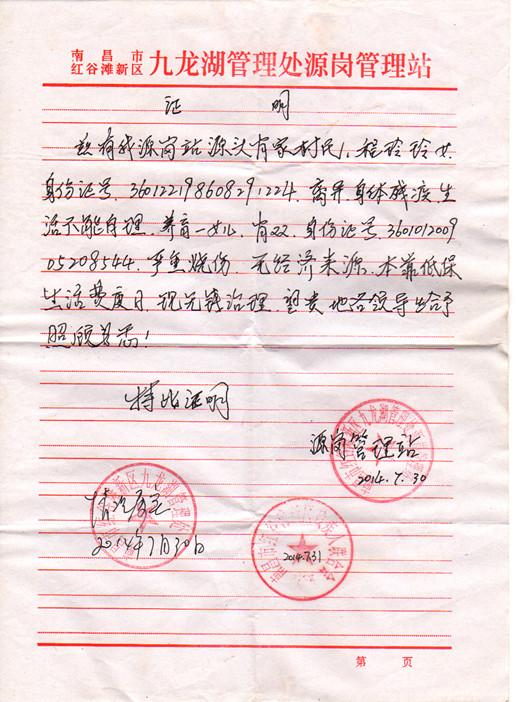 南昌市
红谷滩新区 九龙湖管理处源岗管理站
证明
兹有我源岗站源头肖家村民, 程玲玲 女
身份证号. 360122198608291224. 离异 身体残疾 生
活不能自理. 养育一女儿. 肖双. 身份证号. 3601012009
05208544. 严重烧伤. 无经济来源. 本靠低保
生活费度日. 现无钱治理. 望贵地各领导给予
照顾为而!
特此证明
源岗管理站
2014.7.30
情况属实
2014年7月30日
2014.7.31
第 页